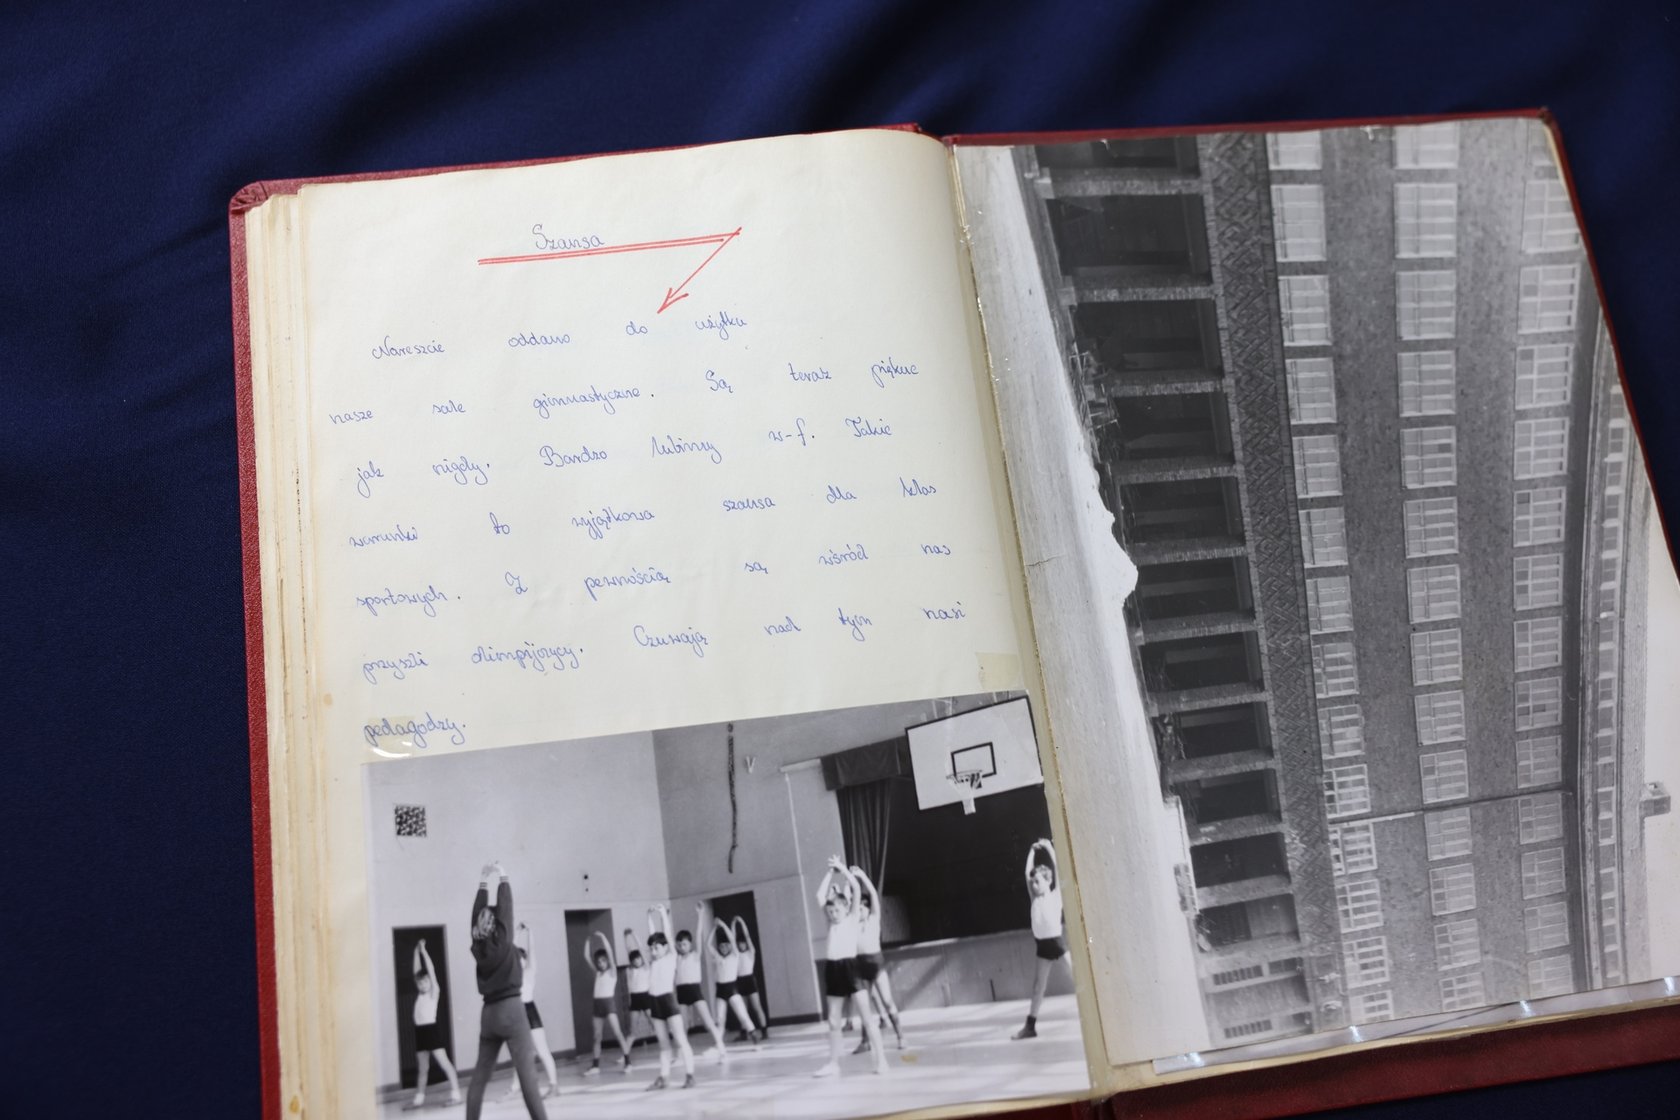 Szansa
Nareszcie oddano do użytku
nasze sale gimnastyczne. Są teraz piękne
jak nigdy. Bardzo lubimy w-f. Takie
warunki to wyjątkowa szansa dla klas
sportowych. Z pewnością są wśród nas
przyszli olimpijczycy. Czuwają nad tym nasi
pedagodzy.